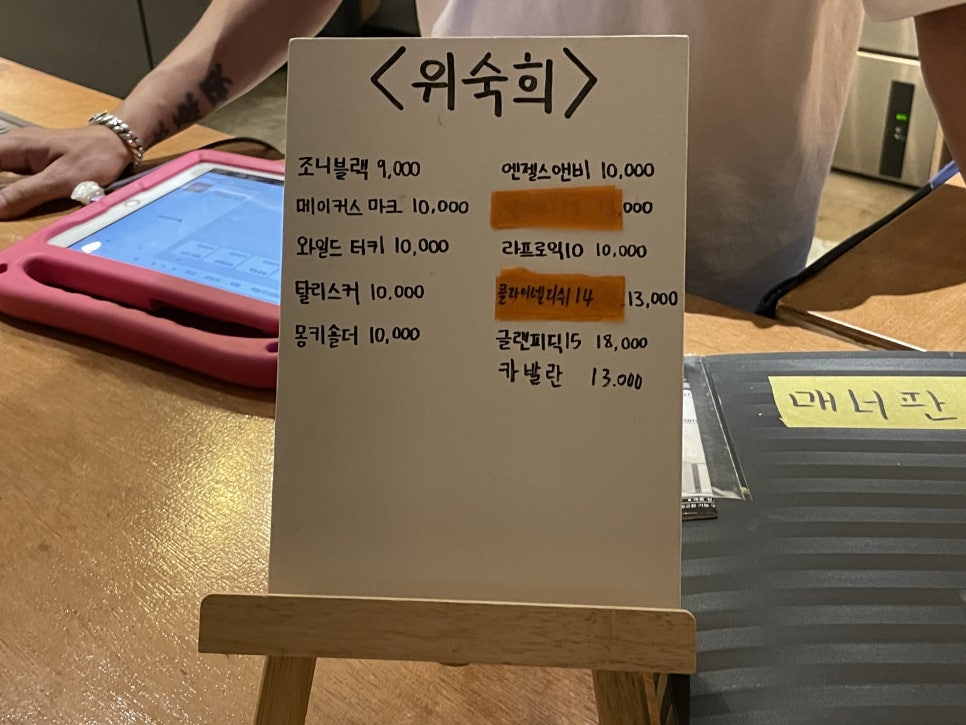 <위숙희>
조니블랙 9,000
메이커스 마크 10,000
와일드 터키 10,000
탈리스커 10,000
몽키숄더 10,000
엔젤스앤비 10,000
,000
라프로익10 10,000
클라이넬리쉬 14 13,000
글랜피딕15 18,000
카발란 13.000
매너판